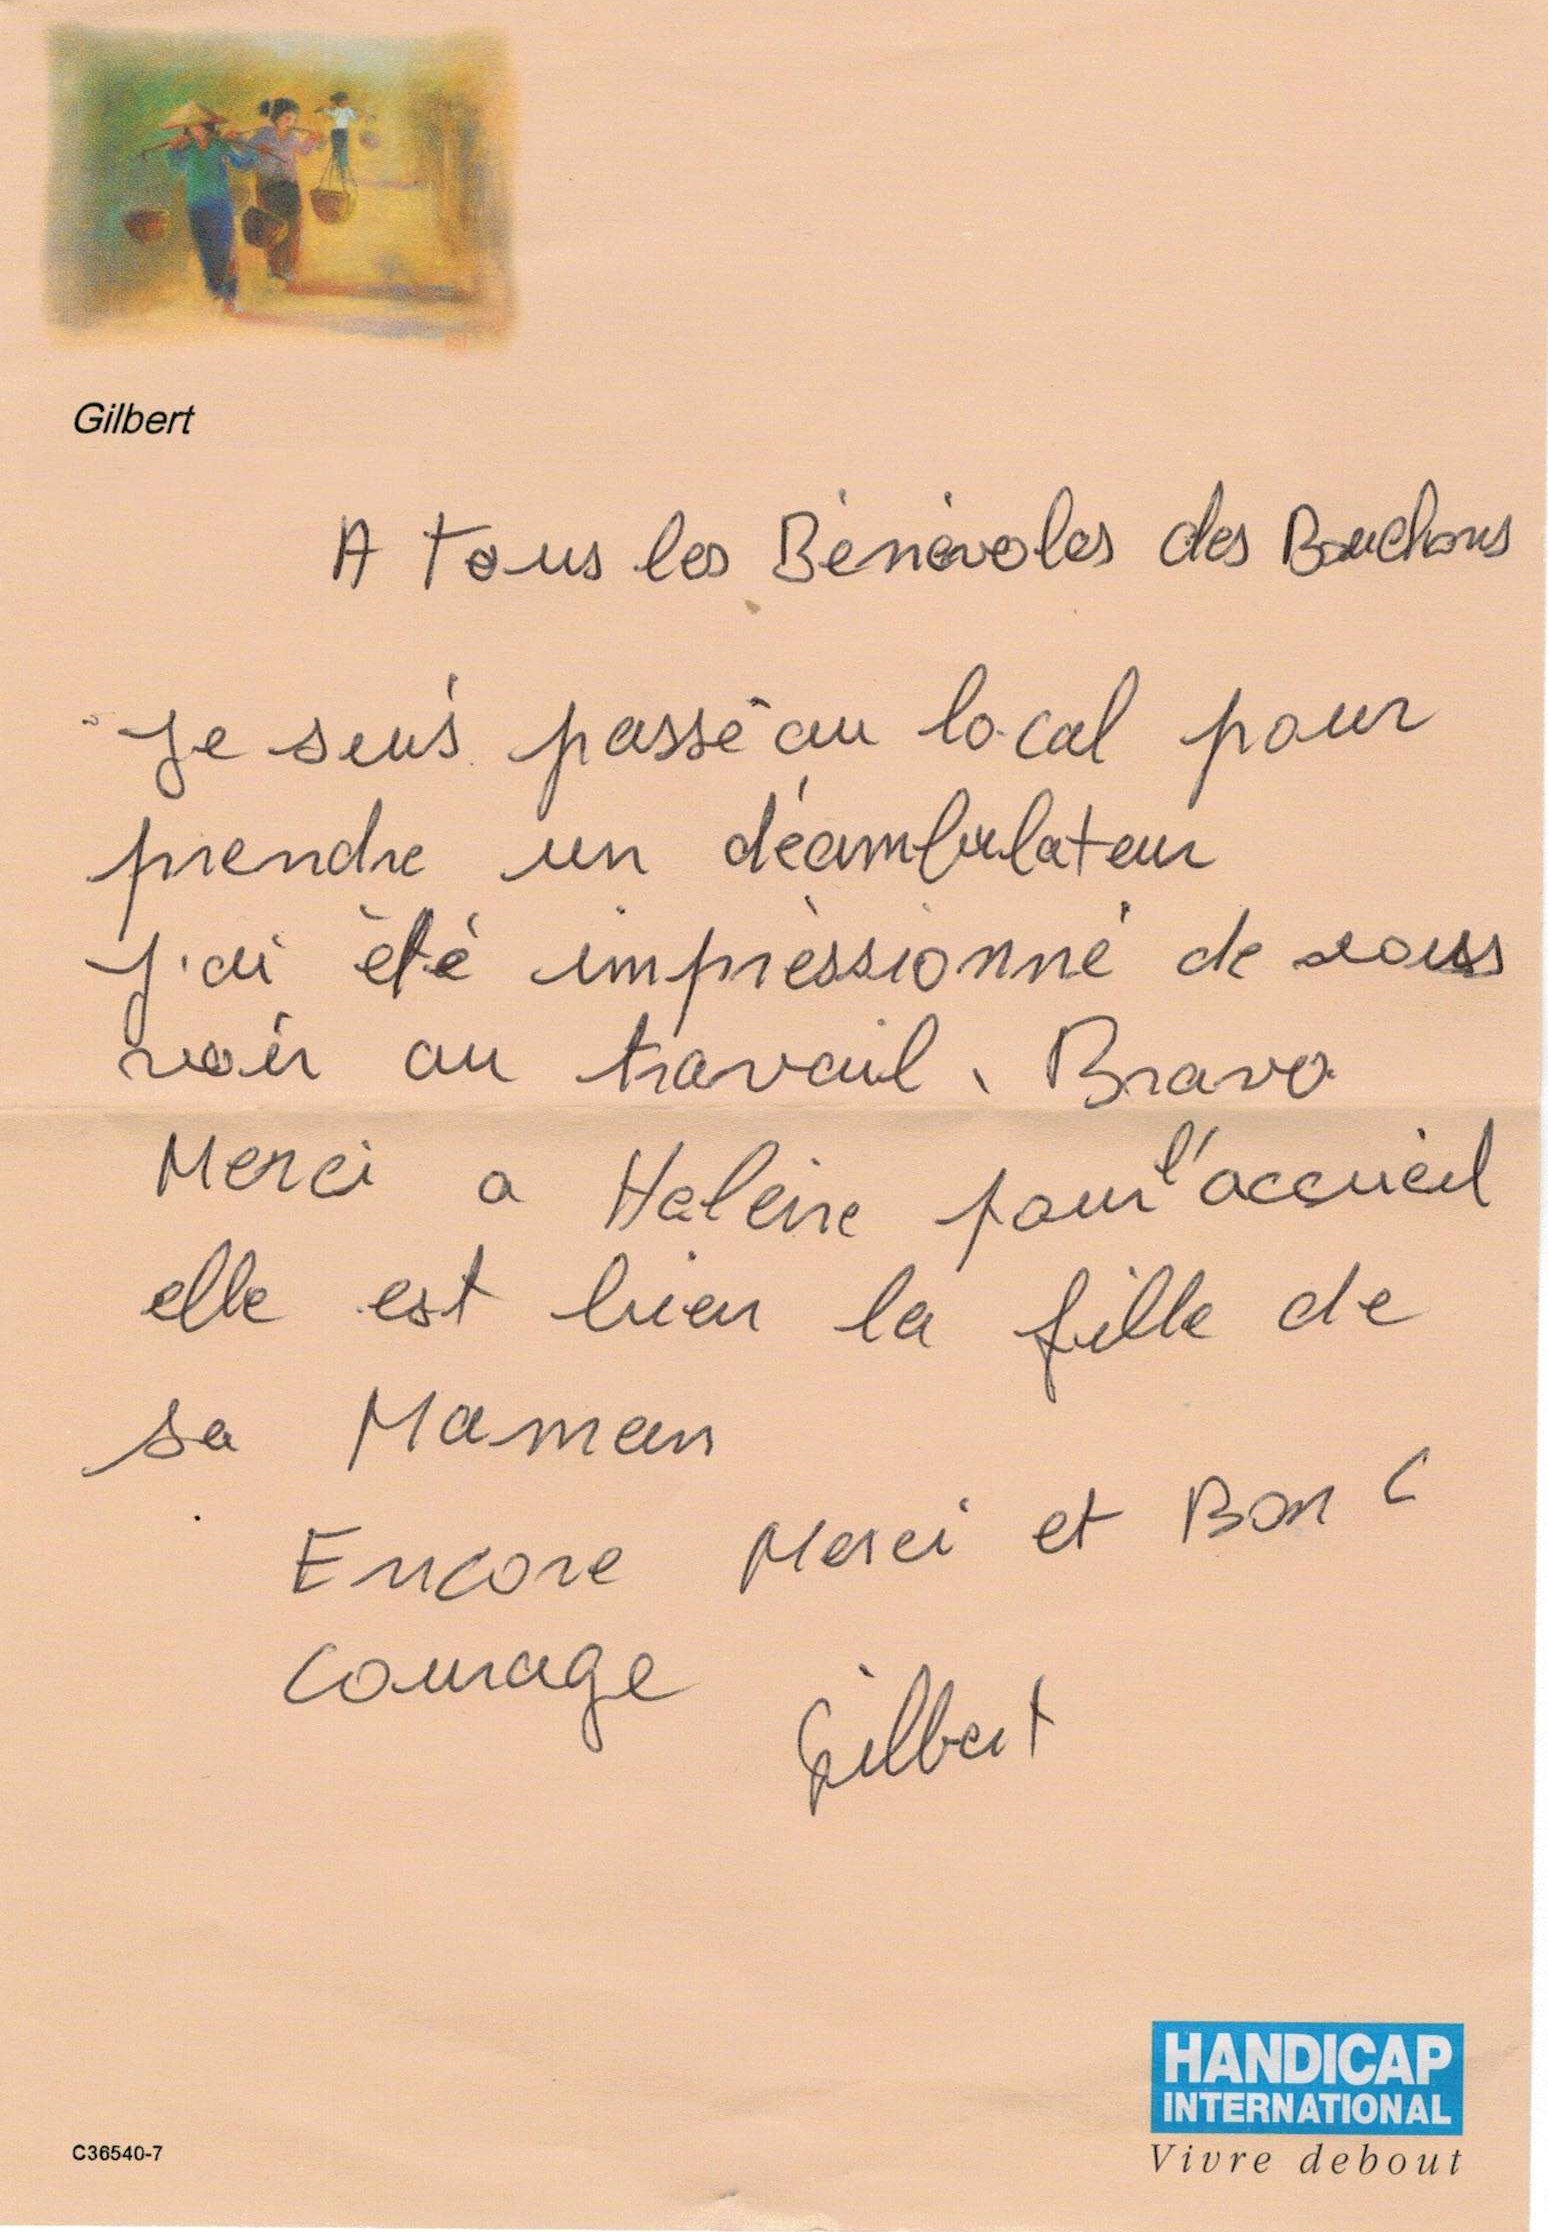 Gilbert
A tous les Bénévoles des Bouchons
Je suis passé au local pour
prendre un déambulateur
J'ai été impréssionné de vous
voir au travail. Bravo
Merci a Heleine pour l'accueil
elle est bien la fille de
sa Maman
Encore Merci et Bon C
Courage
Gilbert
HANDICAP
INTERNATIONAL
Vivre debout
C36540-7